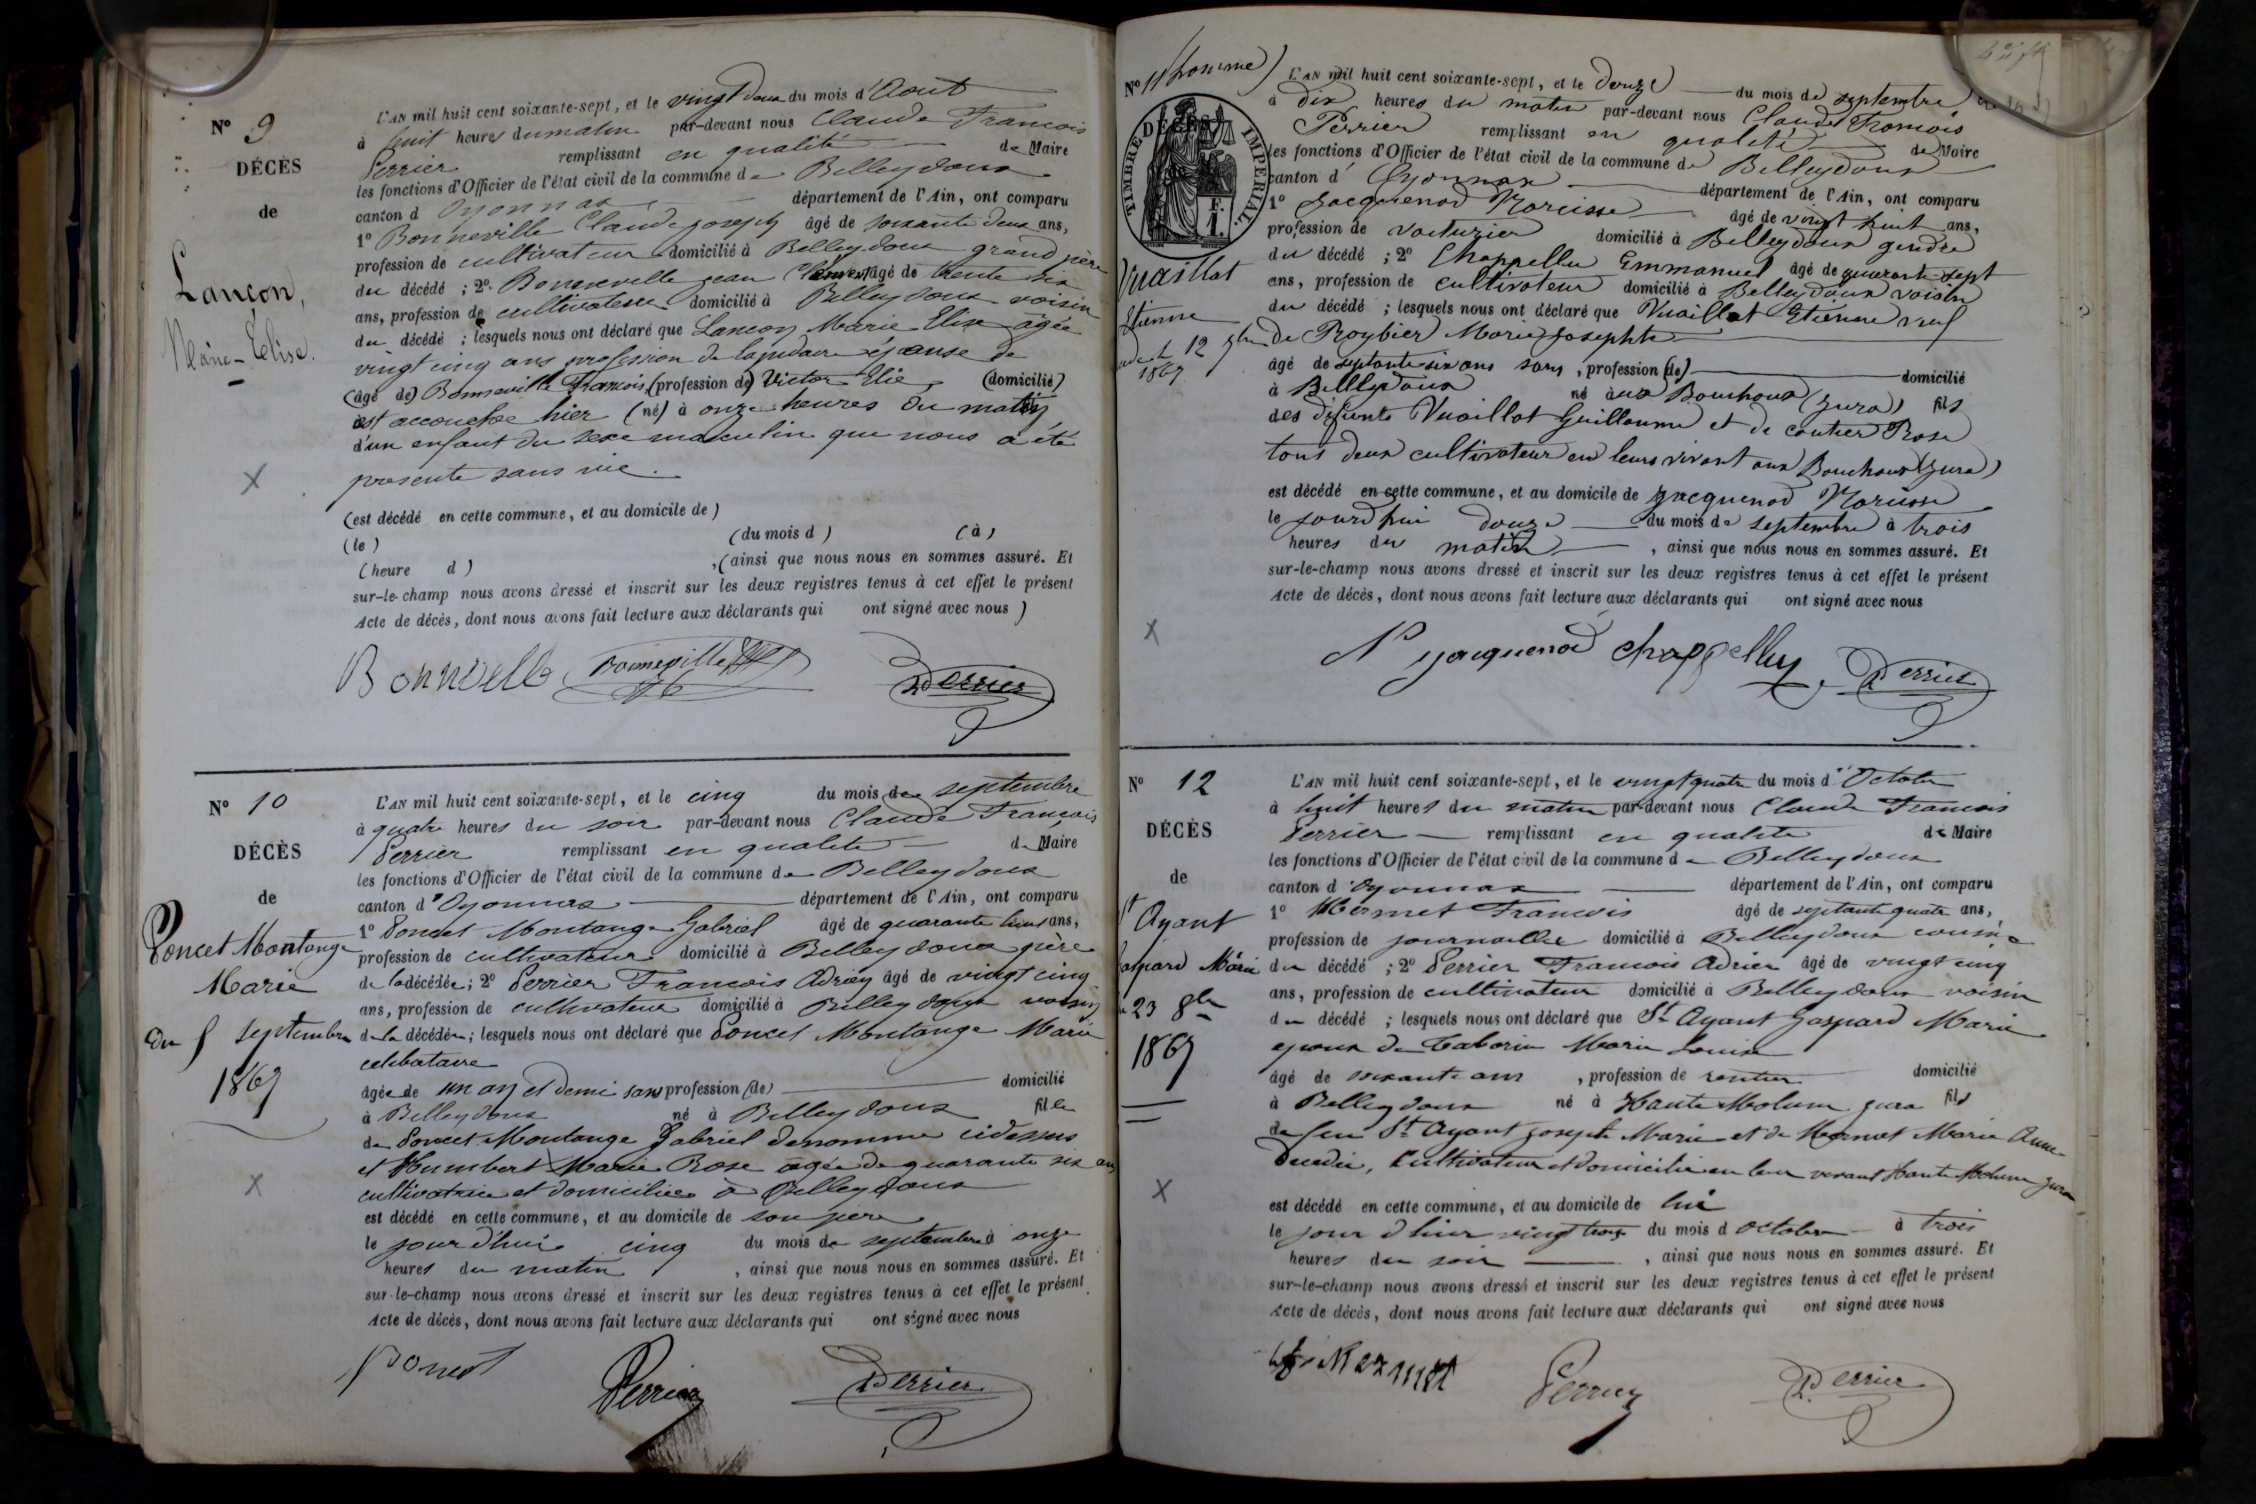 N° 9
DÉCÈS
de
Lançon,
Marie-Élise.
L'AN mil huit cent soixante-sept, et le vingt deux du mois d'Aout
à huit heures du matin par-devant nous Claude François
Perrier remplissant en qualité de Maire
les fonctions d'Officier de l'état civil de la commune de Belleydoux
canton d Oyonnax département de l'Ain, ont comparu
1° Bonneville Claude joseph âgé de soixante deux ans,
profession de cultivateur domicilié à Belleydoux grand père
du décédé ; 2° Bonneville jean Clément âgé de trente six
ans, profession de cultivateur domicilié à Belleydoux voisin
du décédé ; lesquels nous ont déclaré que Lancon Marie Elise âgée
vingt cinq ans profession de lapidaire épouse de
(âgé de) Bonneville François (profession de) Victor Elie (domicilié)
est accouchée hier (né) à onze heures du matin
d'un enfant du sexe masculin que nous a été
presenté sans vie.
(est décédé en cette commune, et au domicile de)
(le) (du mois d) (à)
(heure d) ,(ainsi que nous nous en sommes assuré. Et
sur-le-champ nous avons dressé et inscrit sur les deux registres tenus à cet effet le présent
Acte de décès, dont nous avons fait lecture aux déclarants qui ont signé avec nous)
Bonnville Bonneville Perrier
N° 10
DÉCÈS
de
Poncet Montange
Marie
du 5 septembre
1867
L'AN mil huit cent soixante-sept, et le cinq du mois de septembre
à quatre heures du soir par-devant nous Claude François
Perrier remplissant en qualité de Maire
les fonctions d'Officier de l'état civil de la commune de Belleydoux
canton d'Oyonnax département de l'Ain, ont comparu
1° Poncet Montange Gabriel âgé de quarante huit ans,
profession de cultivateur domicilié à Belleydoux père
de la décédée ; 2° Perrier François Adrien âgé de vingt cinq
ans, profession de cultivateur domicilié à Belleydoux voisin
de la décédée ; lesquels nous ont déclaré que Poncet Montange Marie
celibataire
âgée de un an et demi sans profession (de) domicilié
à Belleydoux né à Belleydoux fille
de Poncet Montange Gabriel denommé cidessus
et Humbert Marie Rose âgée de quarante six ans
cultivatrice et domiciliée à Belleydoux
est décédé en cette commune, et au domicile de son père
le jourd'hui cinq du mois de septembre à onze
heures du matin , ainsi que nous nous en sommes assuré. Et
sur-le-champ nous avons dressé et inscrit sur les deux registres tenus à cet effet le présent
Acte de décès, dont nous avons fait lecture aux déclarants qui ont signé avec nous
Poncet Perrier Perrier
N° 11 (homme)
TIMBRE IMPÉRIAL
DÉCÈS
Vuaillat
Etienne
12 7bre
1867
L'AN mil huit cent soixante-sept, et le douze du mois de septembre
à dix heures du matin par-devant nous Claude François
Perrier remplissant en qualité de Maire
les fonctions d'Officier de l'état civil de la commune de Belleydoux
canton d'Oyonnax département de l'Ain, ont comparu
1° Jacquenod Narcisse âgé de vingt huit ans,
profession de voiturier domicilié à Belleydoux gendre
du décédé ; 2° Chappelluy Emmanuel âgé de quarante sept
ans, profession de cultivateur domicilié à Belleydoux voisin
du décédé ; lesquels nous ont déclaré que Vuaillat Etienne veuf
de Roybier Marie Josephte
âgé de septante six ans sans , profession (de) domicilié
à Belleydoux né aux Bouchoux (jura) fils
des défunts Vuaillat Guillaume et de coutier Rose
tous deux cultivateur en leurs vivant aux Bouchoux (jura)
est décédé en cette commune, et au domicile de Jacquenod Narcisse
le jourd'hui douze du mois de septembre à trois
heures du matin , ainsi que nous nous en sommes assuré. Et
sur-le-champ nous avons dressé et inscrit sur les deux registres tenus à cet effet le présent
Acte de décès, dont nous avons fait lecture aux déclarants qui ont signé avec nous
N jacquenod chappelluy Perrier
N° 12
DÉCÈS
de
St Ayant
Gaspard Marie
23 8bre
1867
L'AN mil huit cent soixante-sept, et le vingt quatre du mois d'Octobre
à huit heures du matin par-devant nous Claude François
Perrier remplissant en qualité de Maire
les fonctions d'Officier de l'état civil de la commune de Belleydoux
canton d'Oyonnax département de l'Ain, ont comparu
1° Mermet François âgé de septante quatre ans,
profession de journallier domicilié à Belleydoux cousin
du décédé ; 2° Perrier François Adrien âgé de vingt cinq
ans, profession de cultivateur domicilié à Belleydoux voisin
du décédé ; lesquels nous ont déclaré que St Ayant Gaspard Marie
epoux de Caborin Marie Louise
âgé de soixante ans , profession de rentier domicilié
à Belleydoux né à Haute Molune jura fils
de feu St Ayant joseph Marie et de Mermet Marie Anne
Decedée, Cultivateur et domicilié en leur vivant Haute Molune jura
est décédé en cette commune, et au domicile de lui
le jour d'hier vingt trois du mois d Octobre à trois
heures du soir , ainsi que nous nous en sommes assuré. Et
sur-le-champ nous avons dressé et inscrit sur les deux registres tenus à cet effet le présent
Acte de décès, dont nous avons fait lecture aux déclarants qui ont signé avec nous
Perrier Perrier